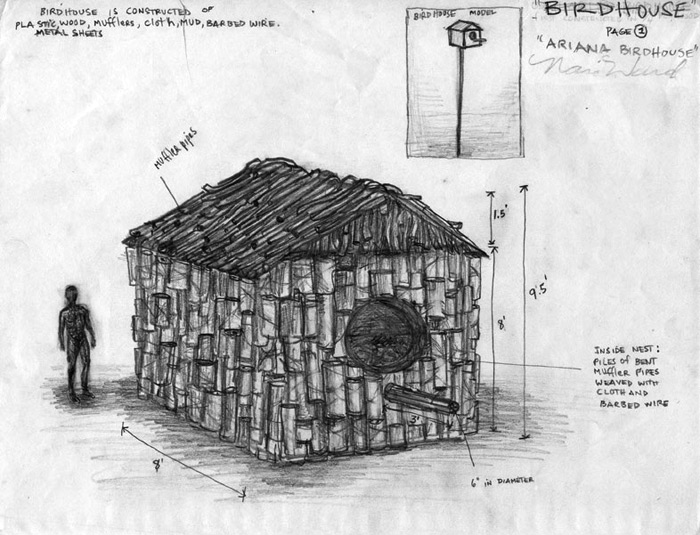 BIRDHOUSE IS CONSTRUCTED OF
PLASTIC, WOOD, MUFFLERS, CLOTH, MUD, BARBED WIRE.
METAL SHEETS
BIRDHOUSE MODEL
"BIRDHOUSE"
PAGE 1
"ARIANA BIRDHOUSE"
Nari Ward
Muffler pipes
1.5'
9.5'
8'
INSIDE NEST:
PILES OF BENT
MUFFLER PIPES
WEAVED WITH
CLOTH AND
BARBED WIRE
3'
8'
6" IN DIAMETER